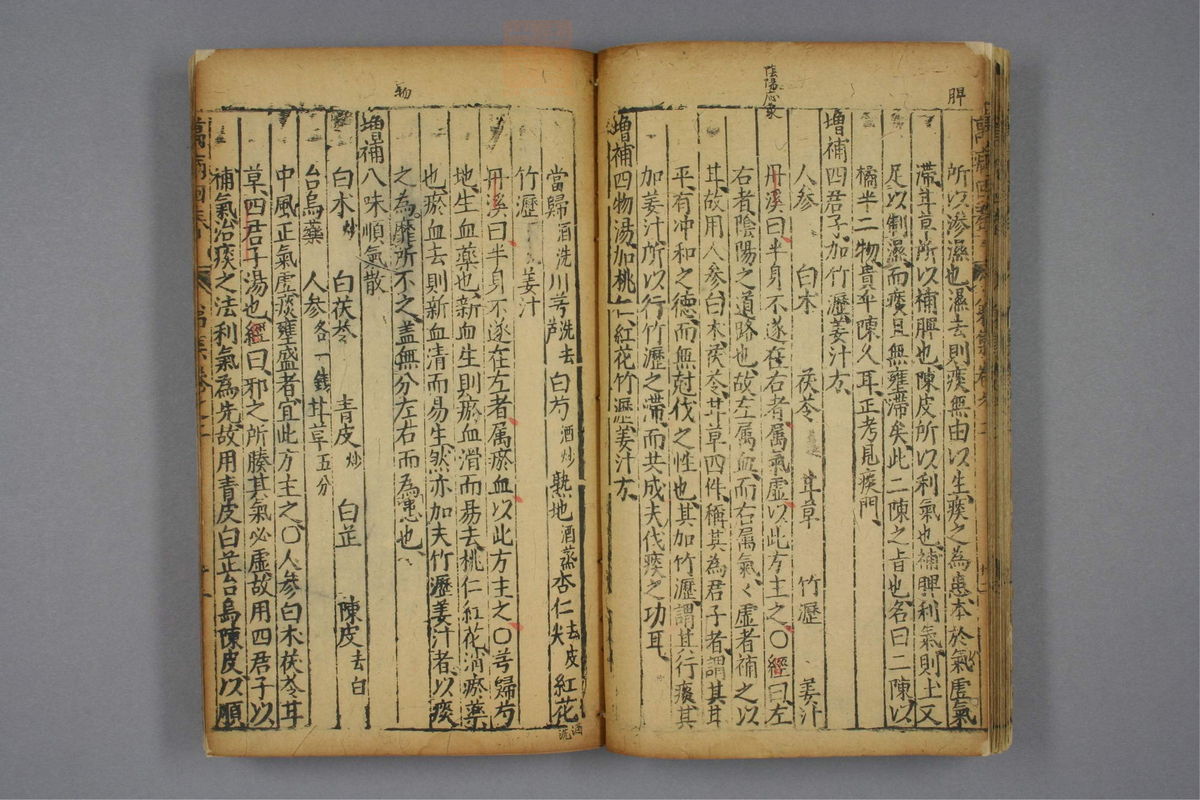 脾
所以滲濕也濕去則痰無由以生痰之為患本於氣虛氣
滯甘草所以補脾也陳皮所以利氣也補脾利氣則土又
足以制濕而痰且無壅滯矣此二陳之旨也名曰二陳以
橘半二物貴乎陳久耳正考見痰門
增補四君子加竹瀝姜汁方
人參 白朮 茯苓 甘草 竹瀝 姜汁
陰陽應象
丹溪曰半身不遂在右者屬氣虛以此方主之〇經曰左
右者陰陽之道路也故左属血而右属氣々虛者補之以
甘故用人參白朮茯苓甘草四件稱其為君子者謂其甘
平有冲和之德而無尅伐之性也其加竹瀝謂其行痰其
加姜汁所以行竹瀝之滯而共成夫伐痰之功耳
增補四物湯加桃仁紅花竹瀝姜汁方
當歸酒洗 川芎洗去芦 白芍酒炒 熟地酒蒸 杏仁去皮尖 紅花酒洗
竹瀝 姜汁
丹溪曰半身不遂在左者属瘀血以此方主之〇芎歸芍
地生血藥也新血生則瘀血滑而易去桃仁紅花消瘀藥
也瘀血去則新血清而易生然亦加夫竹瀝姜汁者以痰
之為
所不之蓋無分左右而為患也
物
增補八味順氣散
白朮炒 白茯苓 青皮炒 白芷 陳皮去白
台烏藥 人參各一錢 甘草五分
中風正氣虛痰壅盛者宜此方主之〇人參白朮茯苓甘
草四君子湯也經曰邪之所腠其氣必虛故用四君子以
補氣治痰之法利氣為先故用青皮白芷台烏陳皮以順